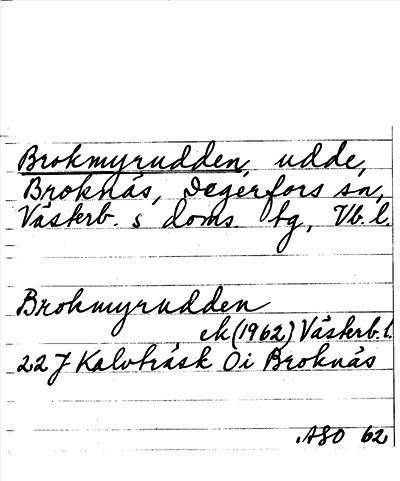 Brokmyrudden, udde,
Broknäs, Degerfors sn,
Västerb. s doms. tg, Vb. l.
Brokmyrudden
ek (1962) Västerb. l.
22 J Kalvträsk Öi Broknäs
ASO 62